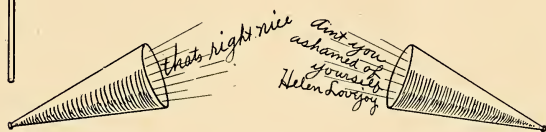 thats right nice
aint you
ashamed of
yourself
Helen Lovejoy